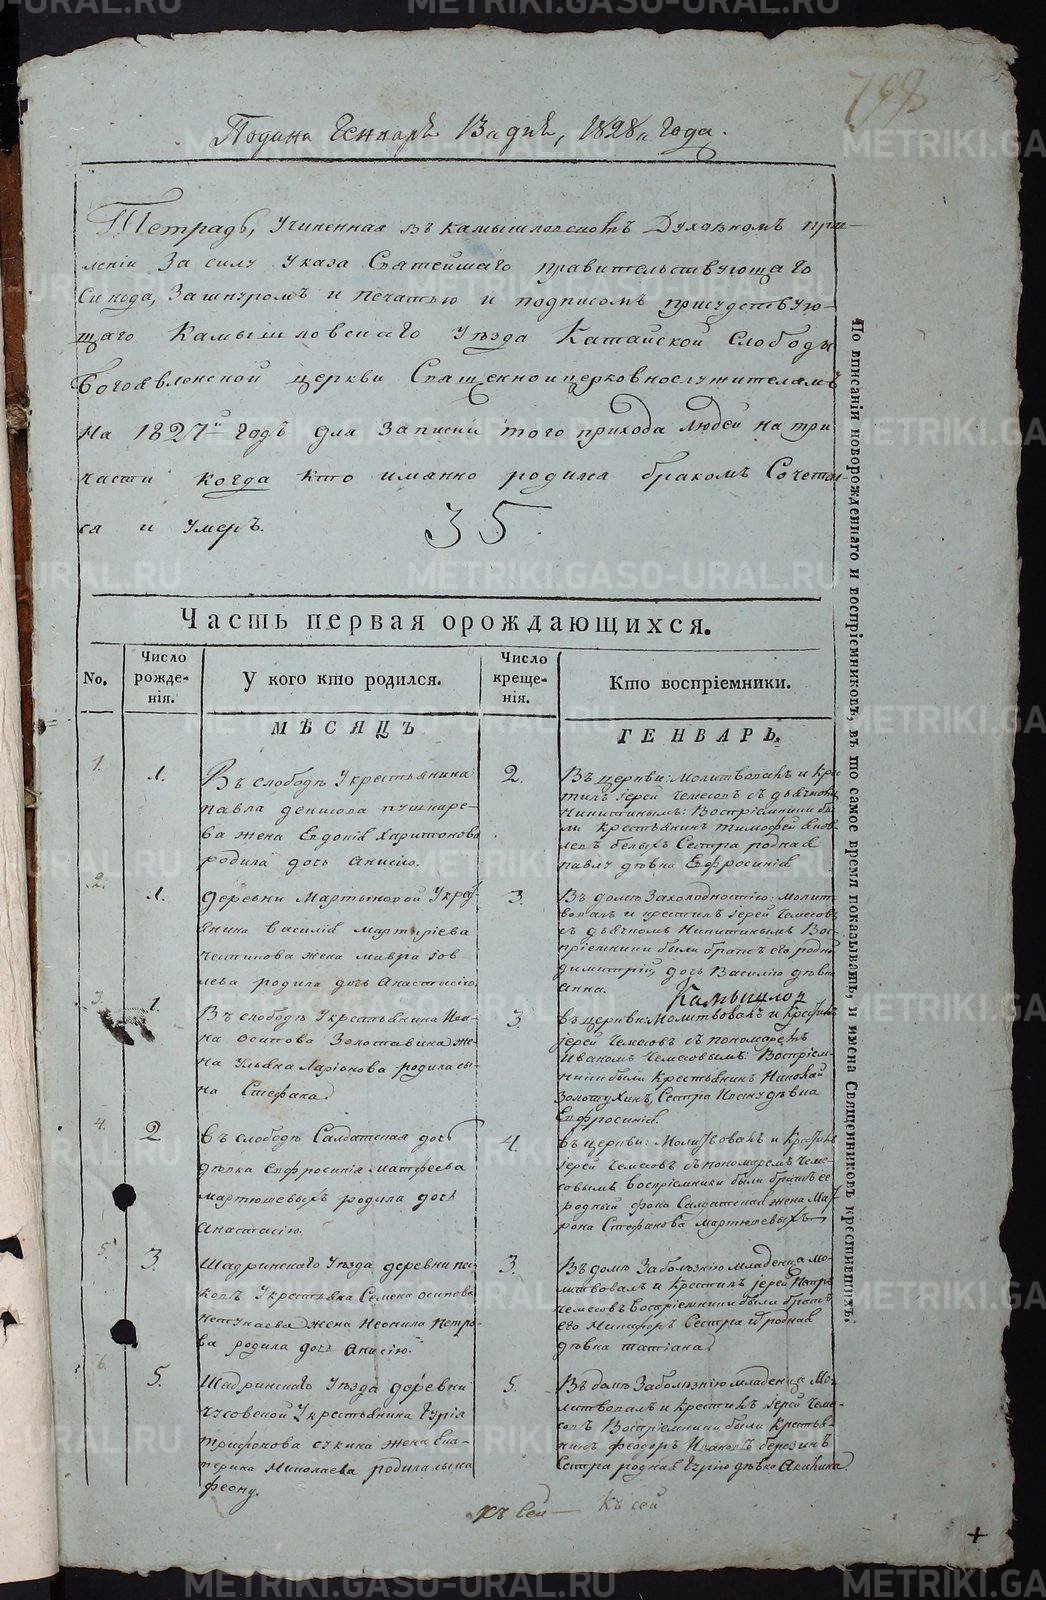 798
Подана Генваря 13 дня, 1828 года.
Тетрадь, Учиненная въ камышловскомъ Духовномъ пра-
лении За силу Указа Святейшаго правительствующаго
Синода, За шнуромъ и печатью и подписомъ присудствую-
щаго Камышловскаго Уѣзда Катайской Слободы
Богоявленской церкви Священноицерковнослужителямъ
на 1827й годъ для Записки того прихода людей на три
части когда кто имянно родился бракомъ Сочетал-
ся и умеръ. 35
Часть первая орождающихся.
No. Число рожде-нія. У кого кто родился. Число креще-нія. Кто воспріемники.
МѢСЯЦЪ ГЕНВАРЬ.
1. 1.
Въ слободѣ Укрестьянина
павла денисова пушкаре-
ва жена Евдокія Харитонова
родила дочь Анисию.
2.
Въ церкви: Молитвовалъ и Кре-
тилъ іерей Чемесовъ съ дьячкомъ
Никитинымъ: Воспріемники бы-
ли крестьянинъ тимофей яков-
левъ белыхъ Сестра родная
павлу дѣвка Ефросинія
2. 1.
деревни Мартыновой Укрес-
янина василія
жена мавра іов-
лева родила дочь Анастасію.
3.
Въ домѣ Захолодностію: молит-
вовалъ и крестилъ іерей Чемесовъ
съ дьячкомъ Никитинымъ Вос-
пріемники были братъ его родной
димитрій, дочь Василию дѣвка
анна.
Камышлов
3. 1.
Въ слободѣ Укрестьянина Ива-
на осипова Золотавина же-
на Ульяна Ларіонова родила сы-
на Стефана
3.
въ церкви: Молитвовалъ и Крестилъ
іерей Чемесовъ съ пономаремъ
Иваномъ Чемесовымъ: Воспріем-
ники были Крестьянинъ Николай
Золотухинъ, Сестра Ивану дѣвка
Ефросинія.
4. 2
въ слободѣ Салдатская дочь
дѣвка Ефросинія Матфеева
мартюшевыхъ родила дочь
Анастасію.
4.
въ церкви: Молитвовалъ и Крестилъ
іерей Чемесовъ съ пономаремъ Чеме-
совымъ Воспріемники были братъ ее
родный фока Салдатская жена Мат-
рона Стефанова мартюшевыхъ
5. 3.
Шадринскаго Уѣзда деревни
Укрестьяна Семена осипова
жена Неонила Петро-
ва родила дочь Анисію.
3.
Въ домѣ Заболезнію младенца мо-
литвовалъ и крестилъ іерей Петръ
чемесовъ Воспріемники были братъ
его Никифоръ Сестра родная
дѣвка татіана
6. 5.
Шадринскаго Уѣзда деревни
Чусовской Укрестьянина Гурія
трифонова сукина жена Ека-
терина Николаева родила сына
феону.
5.
Въ домѣ Заболезнію младенца Мо-
литвовалъ и крестилъ іерей Чеме-
совъ Воспріемники были Крестья-
нинъ феодоръ Ивановъ березинъ
Сестра родная Гурію дѣвка Акилина
къ сей къ сей
По вписаніи новорожденнаго и воспріемниковъ, въ то самое время показывать, и имена Священниковъ крестившихъ.
METRIKI.GASO-URAL.RU